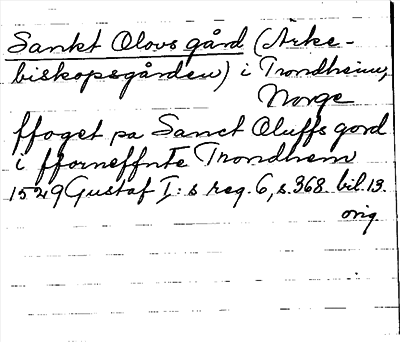 Sankt Olovs gård (Ärke-
biskopsgården) i Trondheim,
Norge
ffoget pa Sanct Oluffs gord
i fforneffnte Trondhem
1529 Gustaf I:s reg. 6, s. 368. bil. 13.
orig.